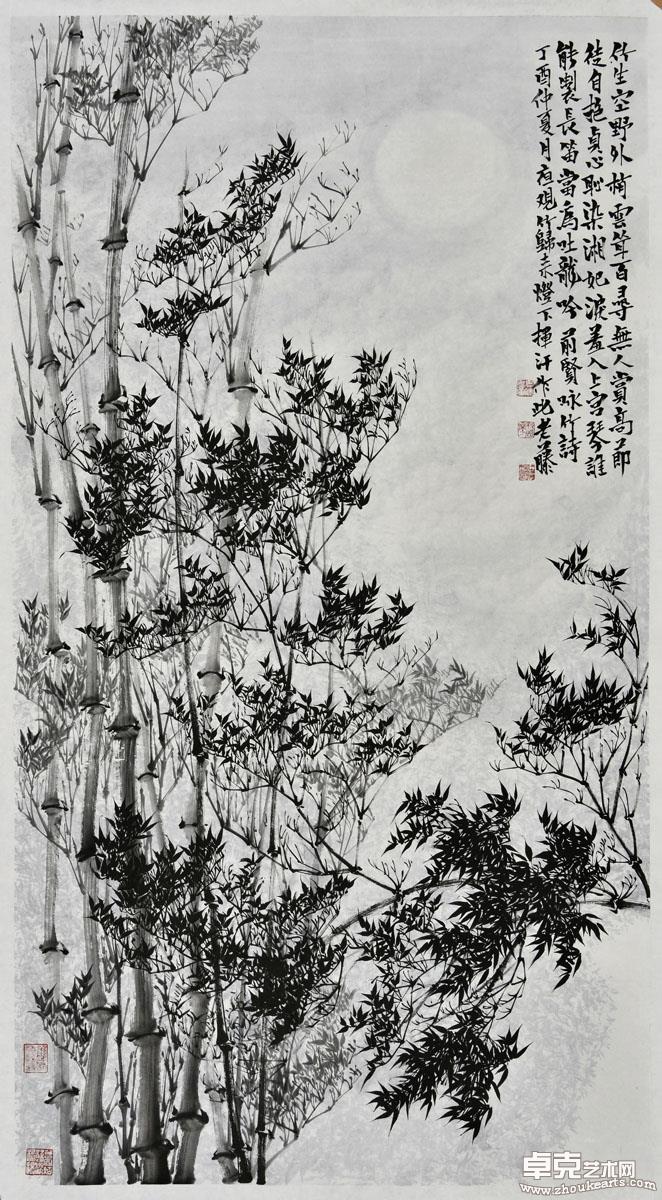 竹生空野外梢雲聳百尋無人賞高節
徒自抱貞心恥染湘妃淚羞入上宮琴誰
能製長笛當為吐龍吟 前賢咏竹詩
丁酉仲夏月夜观竹歸来燈下揮汗作此老藤
卓克艺术网
www.zhoukearts.com